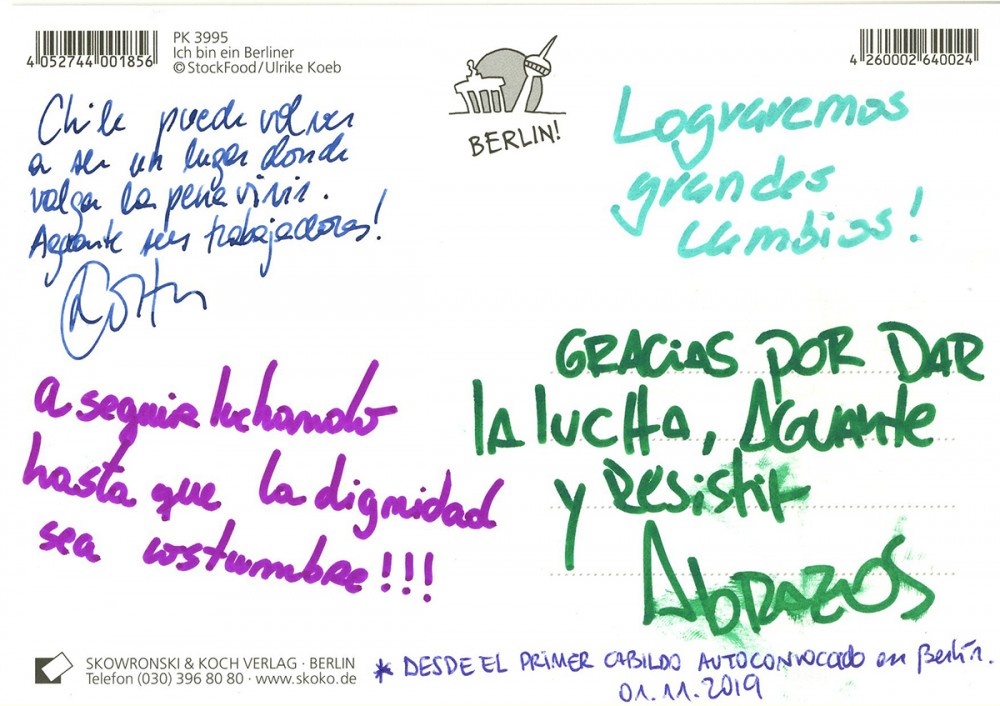 4052744001856
PK 3995
Ich bin ein Berliner
© StockFood/Ulrike Koeb
BERLIN!
4260002640024
Chile puede volver
a ser un lugar donde
valga la pena vivir.
Aguante sus trabajadores!
Lograremos
grandes
cambios!
a seguir luchando
hasta que la dignidad
sea costumbre!!!
GRACiAS POR DAR
lA lucHA, AGUANte
y Resistir
AbRAZOS
SKOWRONSKI & KOCH VERLAG · BERLIN
Telefon (030) 396 80 80 · www.skoko.de
* DESDE EL PRIMER CABILDO AUTOCONVOCADO en Berlín.
01.11.2019